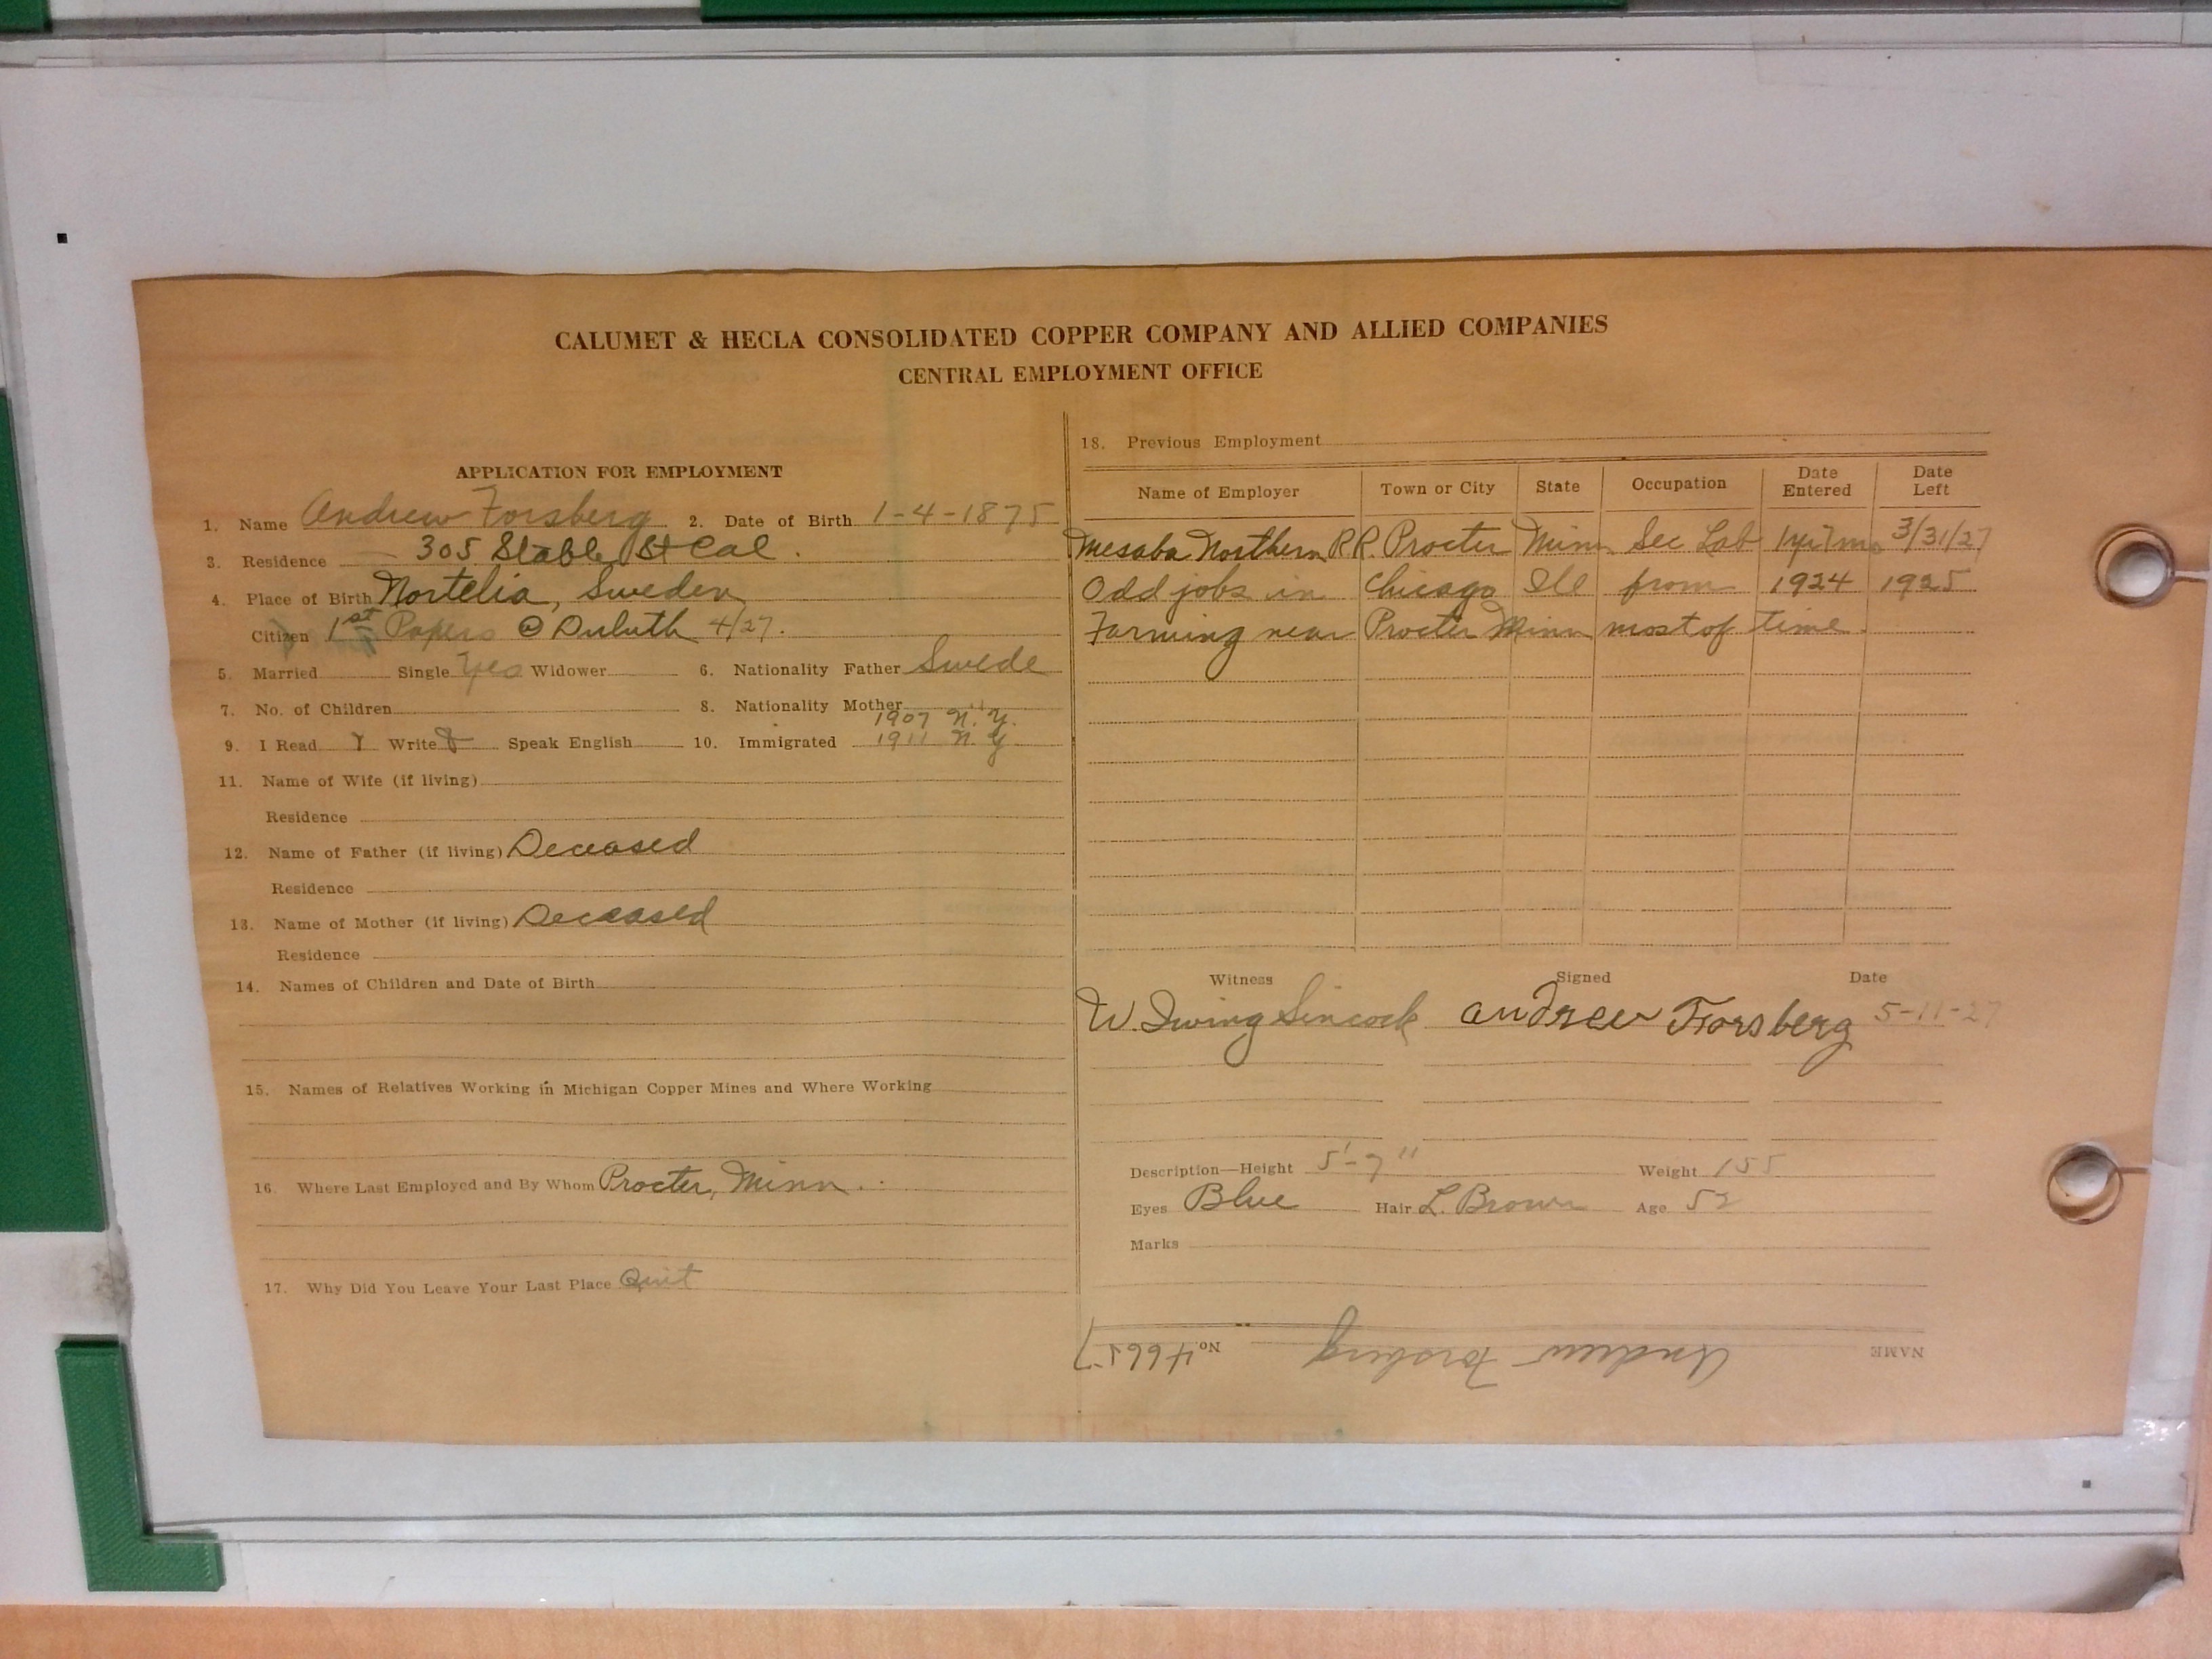 CALUMET & HECLA CONSOLIDATED COPPER COMPANY AND ALLIED COMPANIES
CENTRAL EMPLOYMENT OFFICE
APPLICATION FOR EMPLOYMENT
1. Name Andrew Forsberg 2. Date of Birth 1-4-1875
3. Residence 305 Stable St Cal.
4. Place of Birth Nortelia, Sweden
Citizen 1st Papers @ Duluth 4/27.
5. Married Single Yes Widower 6. Nationality Father Swede
7. No. of Children 8. Nationality Mother "
1907 N.Y.
9. I Read Y Write Y Speak English 10. Immigrated 1911 N.Y
11. Name of Wife (if living)
Residence
12. Name of Father (if living) Deceased
Residence
13. Name of Mother (if living) Deceased
Residence
14. Names of Children and Date of Birth
15. Names of Relatives Working in Michigan Copper Mines and Where Working
16. Where Last Employed and By Whom Procter, Minn.
17. Why Did You Leave Your Last Place Quit
18. Previous Employment
Name of Employer Town or City State Occupation Date Entered Date Left
Mesaba Northern R.R. Procter Minn Sec Lab 1yr 7mo 3/31/27
Odd jobs in Chicago Ill from 1924 1925
Farming near Procter Minn most of time.
Witness Signed Date
W. Irving Sincock Andrew Forsberg 5-11-27
Description—Height 5'-7" Weight 155
Eyes Blue Hair L. Brown Age 52
Marks
NAME Andrew Forsberg No. 46657